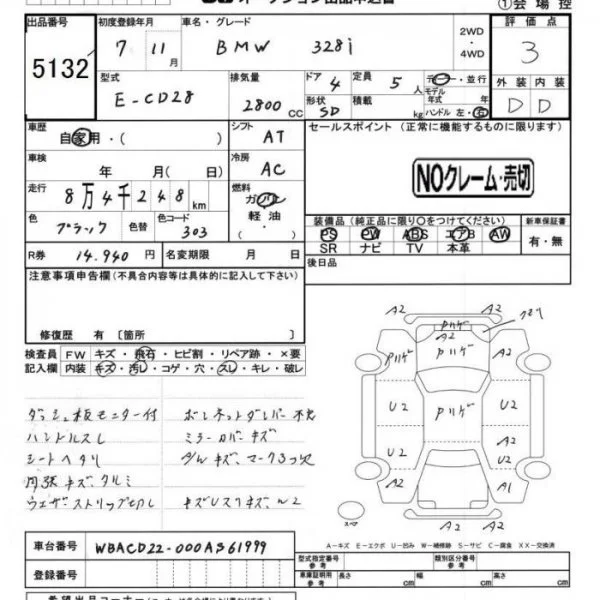 ①会場控
出品番号 初度登録年月 車名・グレード 2WD・4WD 評価点
5132 7年11月 BMW 328i 3
型式 排気量 ドア 4 定員 5人 ディーラー・並行
E-CD28 2800CC 形状 SD 積載 kg モデル年式 年式 外装 内装
ハンドル 左・右 D D
車歴 自家用・( ) シフト AT セールスポイント (正常に機能するものに限ります)
車検 年 月(日) 冷房 AC
NOクレーム・売切
走行 8万4千248km 燃料 ガソリン 軽油・( )
色 ブラック 色替 色コード 303
装備品 (純正品に限り○をつけてください) 新車保証書
PS PW ABS エアB AW 有・無
SR ナビ TV 本革
R券 14,940円 名変期限 月 日 後日品
注意事項申告欄(不具合内容等は具体的に記入して下さい)
修復歴 有〔箇所 〕
検査員記入欄 FW キズ・飛石・ヒビ割・リペア跡・×要
内装 キズ・汚レ・コゲ・穴・スレ・キレ・破レ
ダッシュ板モニター付 ボンネットダンパー不良
ハンドルスレ ミラーカバーキズ
シートヘタリ
内張キズ、タルミ
A2
A2 A2
ハリハゲ
U2 U2
U2 U2
A2 A1
A2
スペア
A-キズ E-エクボ U-凹み W-補修跡 S-サビ C-腐食 XX-交換済
車台番号 WBACD22-000AS61999
登録番号
型式指定番号 参考 類別区分番号 参考
車庫証明用 参考 長さ cm 幅 cm 高さ cm